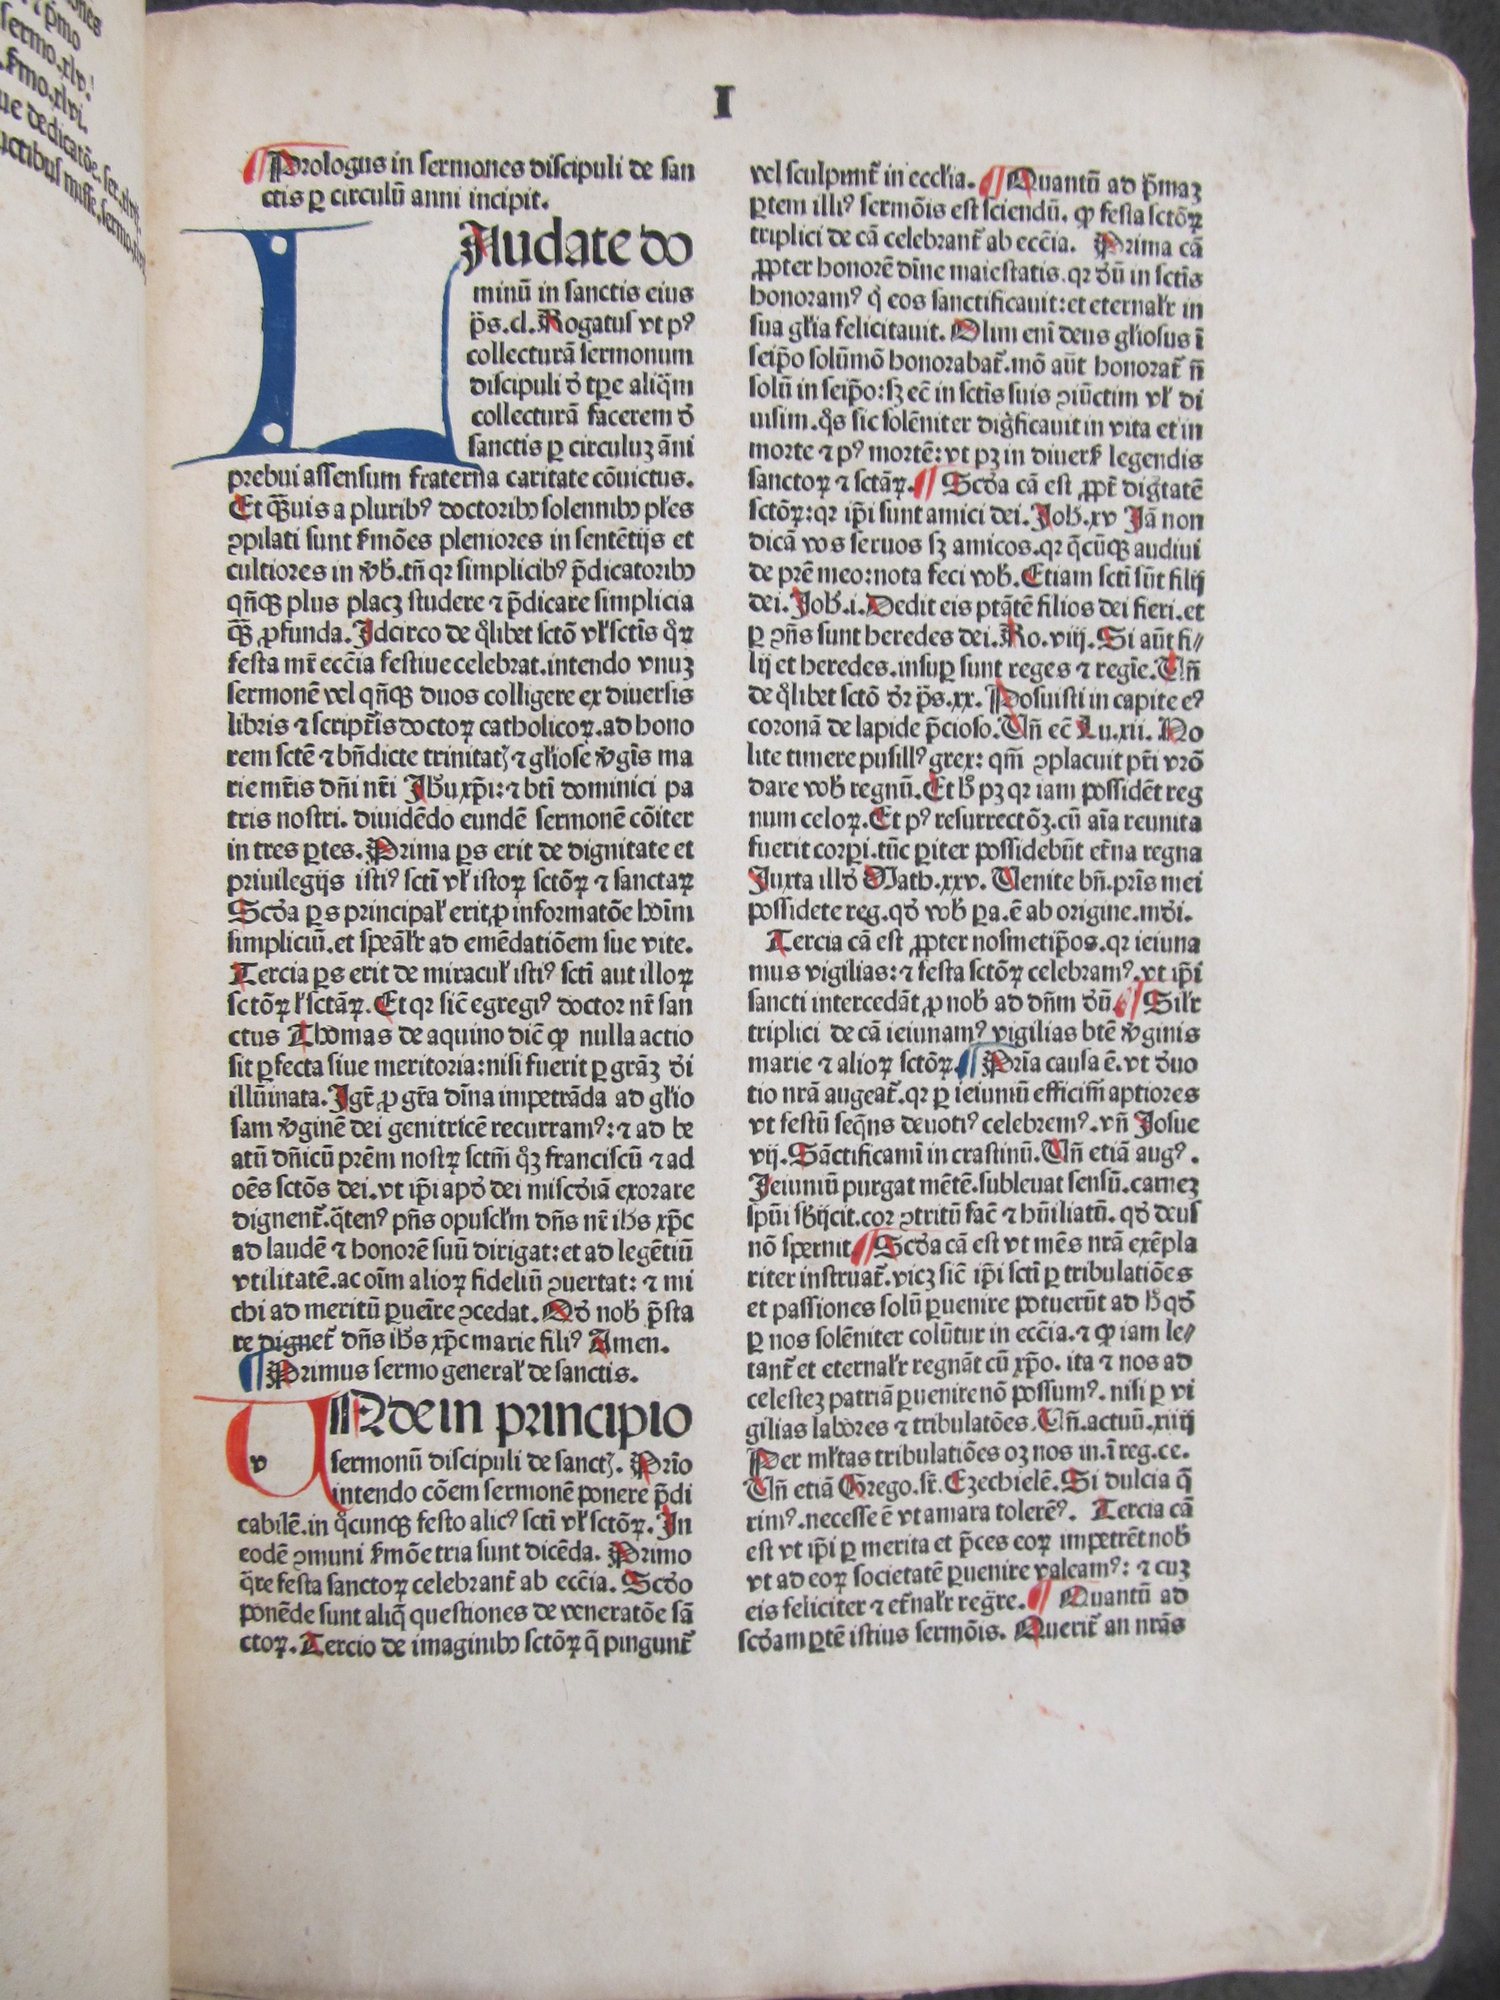 ones
i p̄mo
sermo.xlv.
ẜmo.xlvi.
ue dedicatōe.ser.xlvij.
uctibus misse.sermo.xlviij
I
Prologus in sermones discipuli de san
ctis ꝑ circulū anni incipit.
LAudate do
minū in sanctis eius
p̄s.cl. Rogatus vt pꝰ
collecturā sermonum
discipuli ð tꝑe aliq̄m
collecturā facerem ð
sanctis ꝑ circuluꝫ āni
prebui assensum fraterna caritate cōuictus.
Et qᷓuis a pluribꝰ doctoribꝫ solennibꝫ pl̄es
ꝯpilati sunt ẜmōes pleniores in sentētijs et
cultiores in v̄b̄. tn̄ qꝛ simplicibꝰ p̄dicatoribꝫ
qn̄qꝫ plus placꝫ studere ⁊ p̄dicare simplicia
qᷓꝫ ꝓfunda. Idcirco de qͦlibet sctō vl̄ sctīs qͦꝝ
festa mr̄ ecc̄ia festiue celebrat.intendo vnuꝫ
sermonē vel qn̄qꝫ duos colligere ex diuersis
libris ⁊ scriptīs doctoꝝ catholicoꝝ.ad hono
rem sctē ⁊ bn̄dicte trinitatꝭ ⁊ gl̄iose v̄gīs ma
rie mr̄is dn̄i nr̄i Ih̄u xp̄i:⁊ btī dominici pa
tris nostri. diuidēdo eundē sermonē cōiter
in tres ꝑtes. Prima ꝑs erit de dignitate et
priuilegijs istiꝰ sctī vl̄ istoꝝ sctōꝝ ⁊ sanctaꝝ
Scða ꝑs principal̄ erit,ꝓ informatōe hoīm
simpliciū.et spēal̄r ad emēdatiōem sue vite.
Tercia ꝑs erit de miracul̄ istiꝰ sctī aut illoꝝ
sctōꝝ l̄ sctāꝝ. Et qꝛ sic̄ egregiꝰ doctor nr̄ san
ctus Thomas de aquino dic̄ ꝙ nulla actio
sit ꝑfecta siue meritoria:nisi fuerit ꝑ grāꝫ ði
illūinata. Igr̄ ꝓ gr̄a dīna impetrāda ad gl̄io
sam v̄ginē dei genitricē recurramꝰ:⁊ ad be
atū dn̄icū prēm nostꝝ sctm̄ qͦꝫ franciscū ⁊ ad
oēs sctōs dei.vt ip̄i apð dei miscðiā exorare
dignent̄.qᷓtenꝰ pn̄s opuscl̄m dn̄s nr̄ ih̄s xp̄c
ad laudē ⁊ honorē suū dirigat:et ad legētiū
vtilitatē.ac oīm alioꝝ fideliū ꝯuertat: ⁊ mi
chi ad meritū ꝑueīre ꝯcedat. Qð nob̄ p̄sta
re dignet̄ dn̄s ih̄s xp̄c marie filiꝰ Amen.
Primus sermo general̄ de sanctis.
UNde in principio
v
sermonū discipuli de sanctꝭ. Prīo
intendo cōem sermonē ponere p̄di
cabilē.in qͦcunqꝫ festo alicꝰ sctī vl̄ sctōꝝ. In
eodē ꝯmuni ẜmōe tria sunt dicēda. Primo
q̄re festa sanctoꝝ celebrant̄ ab ecc̄ia. Scðo
ponēde sunt aliq̄ questiones de veneratōe sā
ctoꝝ. Tercio de imaginibꝫ sctōꝝ q̄ pingunt̄
vel sculpunt̄ in eccl̄ia. Quantū ad p̄maꝫ
ꝑtem illiꝰ sermōis est sciendū. ꝙ festa sctōꝝ
triplici de cā celebrant̄ ab ecc̄ia. Prima cā
ꝓpter honorē dīne maiestatis.qꝛ ðū in sctīs
honoramꝰ qͥ eos sanctificauit:et eternal̄r in
sua gl̄ia felicitauit. Olim enī deus gl̄iosus ī
seip̄o solūmō honorabat̄.mō aūt honorat̄ n̄
solū in seip̄o:sꝫ ec̄ in sctīs suis ꝯiūctim vl̄ di
uisim.qͦs sic solēniter digͥficauit in vita et in
morte ⁊ pꝰ mortē:vt pꝫ in diuerẜ legendis
sanctoꝝ ⁊ sctāꝝ. Scða cā est ꝓpt̄ digͥtatē
sctōꝝ:qꝛ ip̄i sunt amici dei. Joh̄.xv Jā non
dicā vos seruos sꝫ amicos.qꝛ q̄cūqꝫ audiui
de prē meo:nota feci vob̄. Etiam sctī sūt filij
dei. Joh̄.i. Dedit eis ptātē filios dei fieri.et
ꝑ ꝯn̄s sunt heredes dei. Ro.viij. Si aūt fi⸗
lij et heredes.insuꝑ sunt reges ⁊ regīe. Un̄
de qͦlibet sctō ðr p̄s.xx. Posuisti in capite eꝰ
coronā de lapide p̄cioso. Un̄ ec̄ Lu.xii. No
lite timere pusillꝰ grex: qm̄ ꝯplacuit pr̄i vrō
dare vob̄ regnū. Et h̄ pꝫ qꝛ iam possidēt reg
num celoꝝ. Et pꝰ resurrectōꝫ.cū aīa reunita
fuerit corꝑi.tūc ꝑiter possidebūt et̄na regna
Juxta illð Math.xxv. Uenite bn̄.pr̄is mei
possidete reg.qð vob̄ pa.ē ab origine.mði.
Tercia cā est ꝓpter nosmetip̄os.qꝛ ieiuna
mus vigilias:⁊ festa sctōꝝ celebramꝰ.vt ip̄i
sancti intercedāt ꝓ nob̄ ad dn̄m ðū. Sil̄r
triplici de cā ieiunamꝰ vigilias btē v̄ginis
marie ⁊ alioꝝ sctōꝝ. Prīa causa ē.vt ðuo
tio nrā augeat̄.qꝛ ꝑ ieiuniū efficim̄ aptiores
vt festū seqn̄s deuotiꝰ celebremꝰ.vn̄ Josue
vij. Sāctificamī in crastinū. Un̄ etiā augꝰ.
Jeiuniū purgat mētē.subleuat sensū.carneꝫ
spūi sb̄ijcit.cor ꝯtritū fac̄ ⁊ hūiliatū. qð deus
nō spernit. Scða cā est vt mēs nrā exēpla
riter instruat̄.vicꝫ sic̄ ip̄i sctī ꝑ tribulatiōes
et passiones solū ꝑuenire potuerūt ad h̄ qð
ꝑ nos solēniter colūtur in ecc̄ia.⁊ ꝙ iam le⸗
tant̄ et eternal̄r regnāt cū xp̄o. ita ⁊ nos ad
celesteꝫ patriā ꝑuenire nō possumꝰ. nisi ꝑ vi
gilias labores ⁊ tribulatōes. Un̄.actuū.xiiij
Per ml̄tas tribulatiōes oꝫ nos in.ī reg.ce.
Un̄ etiā Grego.sr̄. Ezechielē. Si dulcia q̄
rimꝰ.necesse ē vt amara tolerēꝰ. Tercia cā
est vt ip̄i ꝑ merita et p̄ces eoꝝ impetrēt nob̄
vt ad eoꝝ societatē ꝑuenire valeamꝰ: ⁊ cuꝫ
eis feliciter ⁊ et̄nal̄r reḡre. Quantū ad
scðam ꝑtē istius sermōis. Querit̄ an nrās